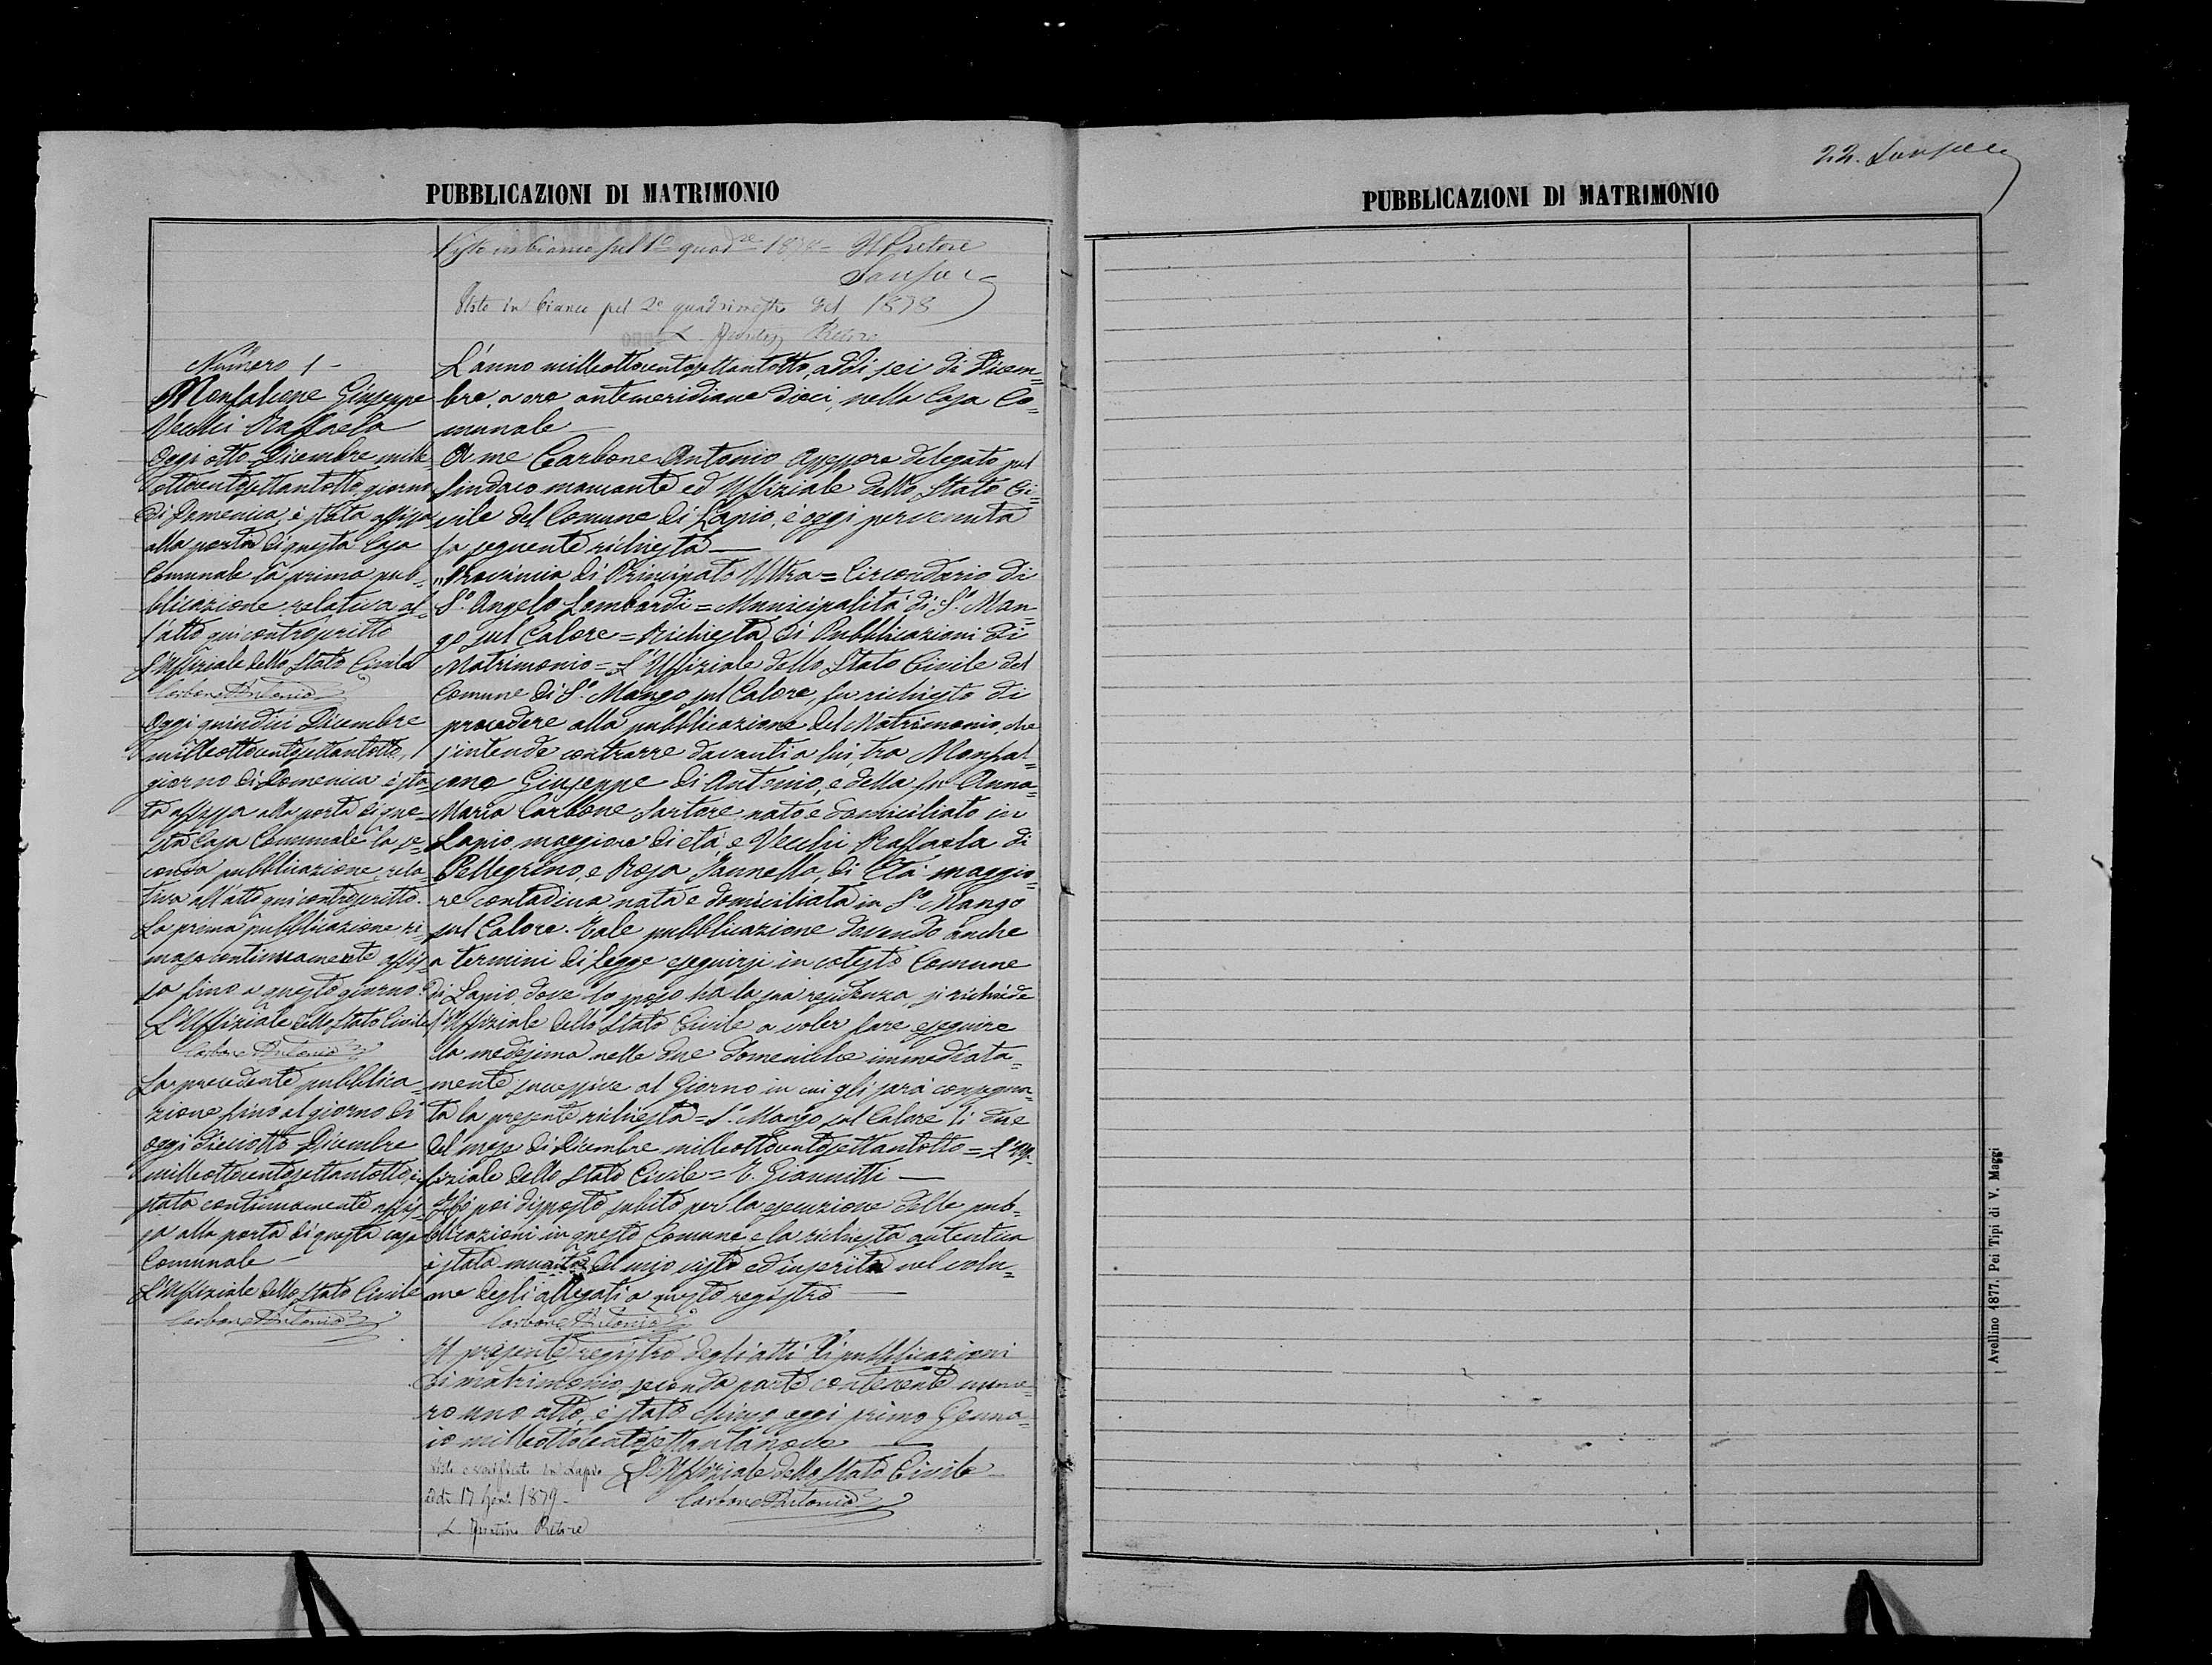 PUBBLICAZIONI DI MATRIMONIO
Visto in bianco pel 1º quadre 1878 = Il Pretore
Visto in bianco pel 2º quadrimestre del 1878
L. Pretore
Numero 1 -
Monfalcone Giuseppe
Vecchi Raffaela
Oggi otto Dicembre mille
ottocentosettantotto, giorno
di Domenica, è stata affissa
alla porta di questa Casa
Comunale la prima pub=
blicazione relativa al=
l'atto qui controscritto
L'Uffiziale dello Stato Civile
Carbone Antonio
Oggi quindici Dicembre
milleottocentosettantotto,
giorno di Domenica è sta=
ta affissa alla porta di que=
sta Casa Comunale la se=
conda pubblicazione, rela=
tiva all'atto qui controscritto.
La prima pubblicazione ri=
masa continuamente affis=
sa fino a questo giorno.
L'Uffiziale dello Stato Civile
Carbone Antonio
La precedente pubblica=
zione fino al giorno di
oggi dieciotto Dicembre
milleottocentosettantotto, è
stata continuamente affis=
sa alla porta di questa casa
Comunale -
L'Uffiziale dello Stato Civile
Carbone Antonio
L'anno milleottocentosettantotto, addì sei di Dicem=
bre, a ore antemeridiane dieci, nella Casa Co=
munale
A me Carbone Antonio Assessore delegato pel
Sindaco mancante ed Uffiziale dello Stato Ci=
vile del Comune di Lapio, è oggi pervenuta
la seguente richiesta —
"Provincia di Principato Ultra = Circondario di
S. Angelo Lombardi = Municipalità di S. Man=
go sul Calore = Richiesta di Pubblicazioni di
Matrimonio = L'Uffiziale dello Stato Civile del
Comune di S. Mango sul Calore, fu richiesto di
procedere alla pubblicazione del Matrimonio, che
s'intende contrarre davanti a lui, tra Monfal=
cone Giuseppe di Antonio, e della fu Anna=
Maria Carbone sartore nato e domiciliato in
Lapio maggiore di età, e Vecchi Raffaela di
Pellegrino, e Rosa Iannella, di Età maggio=
re contadina nata e domiciliata in S. Mango
sul Calore. Tale pubblicazione dovendo anche
a termini di legge eseguirsi in cotesto Comune
di Lapio, dove lo sposo ha la sua residenza, si richiede
l'Uffiziale dello Stato Civile a voler fare eseguire
la medesima nelle due domeniche immediata=
mente successive al Giorno in cui gli sarà consegna=
ta la presente richiesta = S. Mango sul Calore li due
del mese di Dicembre milleottocentosettantotto = L'Uf=
fiziale dello Stato Civile = E. Giannitti —
Ho poi disposto subito per la esecuzione delle pub=
blicazioni in questo Comune e la richiesta autentica
è stata munita del mio visto ed inserita nel volu=
me degli allegati a questo registro —
Carbone Antonio
Il presente registro degli atti di pubblicazioni
di matrimonio seconda parte contenente nume=
ro uno atto, è stato chiuso oggi primo Genna=
io milleottocentosettantanove —
L'Uffiziale dello Stato Civile
Carbone Antonio
Visto e verificato in Lapio
addì 17 Gen. 1879 -
L. Pretore
22.
PUBBLICAZIONI DI MATRIMONIO
Avellino 1877. Pei Tipi di V. Maggi